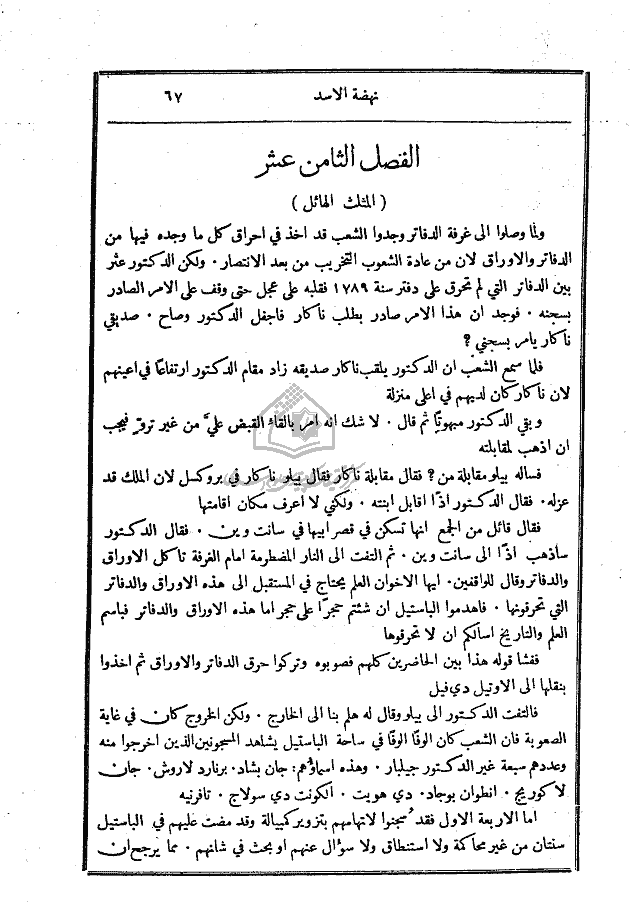 نهضة الاسد
٦٧
الفصل الثامن عشر
( المثلث الهائل )
ولما وصلوا الى غرفة الدفاتر وجدوا الشعب قد اخذ في احراق كل ما وجده فيها من
الدفاتر والاوراق لان من عادة الشعوب التخريب من بعد الانتصار . ولكن الدكتور عثر
بين الدفاتر التي لم تحرق على دفتر سنة ١٧٨٩ فقلبه على عجل حتى وقف على الامر الصادر
بسجنه . فوجد ان هذا الامر صادر بطلب ناكار فاجفل الدكتور وصاح . صديقي
ناكار يامر بسجني ؟
فلما سمع الشعب ان الدكتور يلقب ناكار صديقه زاد مقام الدكتور ارتفاعًا في اعينهم
لان ناكار كان لديهم في اعلى منزلة
وبقي الدكتور مبهوتًا ثم قال . لا شك انه امر بالقاء القبض عليَّ من غير تروٍ فيجب
ان اذهب لمقابلته
فساله بيلو مقابلة من ؟ فقال مقابلة ناكار فقال بيلو ناكار في بروكسل لان الملك قد
عزله . فقال الدكتور اذًا اقابل ابنته . ولكني لا اعرف مكان اقامتها
فقال قائل من الجمع انها تسكن في قصر ابيها في سانت وين . فقال الدكتور
ساذهب اذًا الى سانت وين . ثم التفت الى النار المضطرمة امام الغرفة تاكل الاوراق
والدفاتر وقال للواقفين . ايها الاخوان العلم يحتاج في المستقبل الى هذه الاوراق والدفاتر
التي تحرقونها . فاهدموا الباستيل ان شئتم حجرًا على حجر اما هذه الاوراق والدفاتر فباسم
العلم والتاريخ اسالكم ان لا تحرقوها
ففشا قوله هذا بين الحاضرين كلهم فصوبوه وتركوا حرق الدفاتر والاوراق ثم اخذوا
بنقلها الى الاوتيل دي فيل
فالتفت الدكتور الى بيلو وقال له هلم بنا الى الخارج . ولكن الخروج كان في غاية
الصعوبة فان الشعب كان الوفًا الوفًا في ساحة الباستيل يشاهد المسجونين الذين اخرجوا منه
وعددهم سبعة غير الدكتور جيلبار . وهذه اسماؤهم : جان بشاد . برنارد لاروش . جان
لاكوريج . انطوان بوجاد . دي هويت . الكونت دي سولاج . تافرنيه
اما الاربعة الاول فقد سُجنوا لاتهامهم بتزوير كمبيالة وقد مضت عليهم في الباستيل
سنتان من غير محاكمة ولا استنطاق ولا سوال عنهم او بحث في شانهم . مما يرجح ان